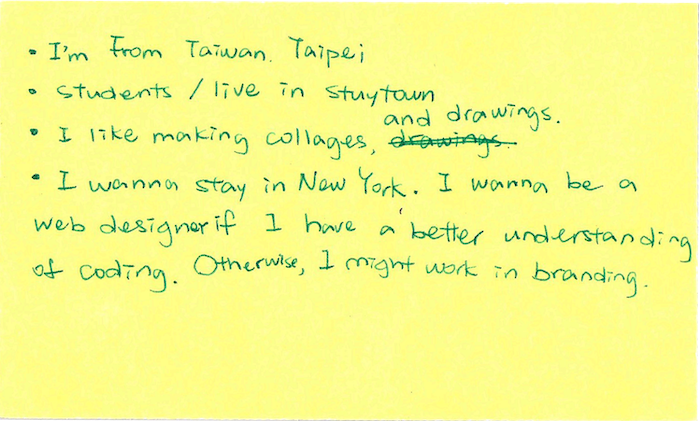 • I'm From Taiwan. Taipei
• students / live in stuytown
and drawings.
• I like making collages, drawings.
• I wanna stay in New York. I wanna be a
web designer if I have a better understanding
of coding. Otherwise, I might work in branding.